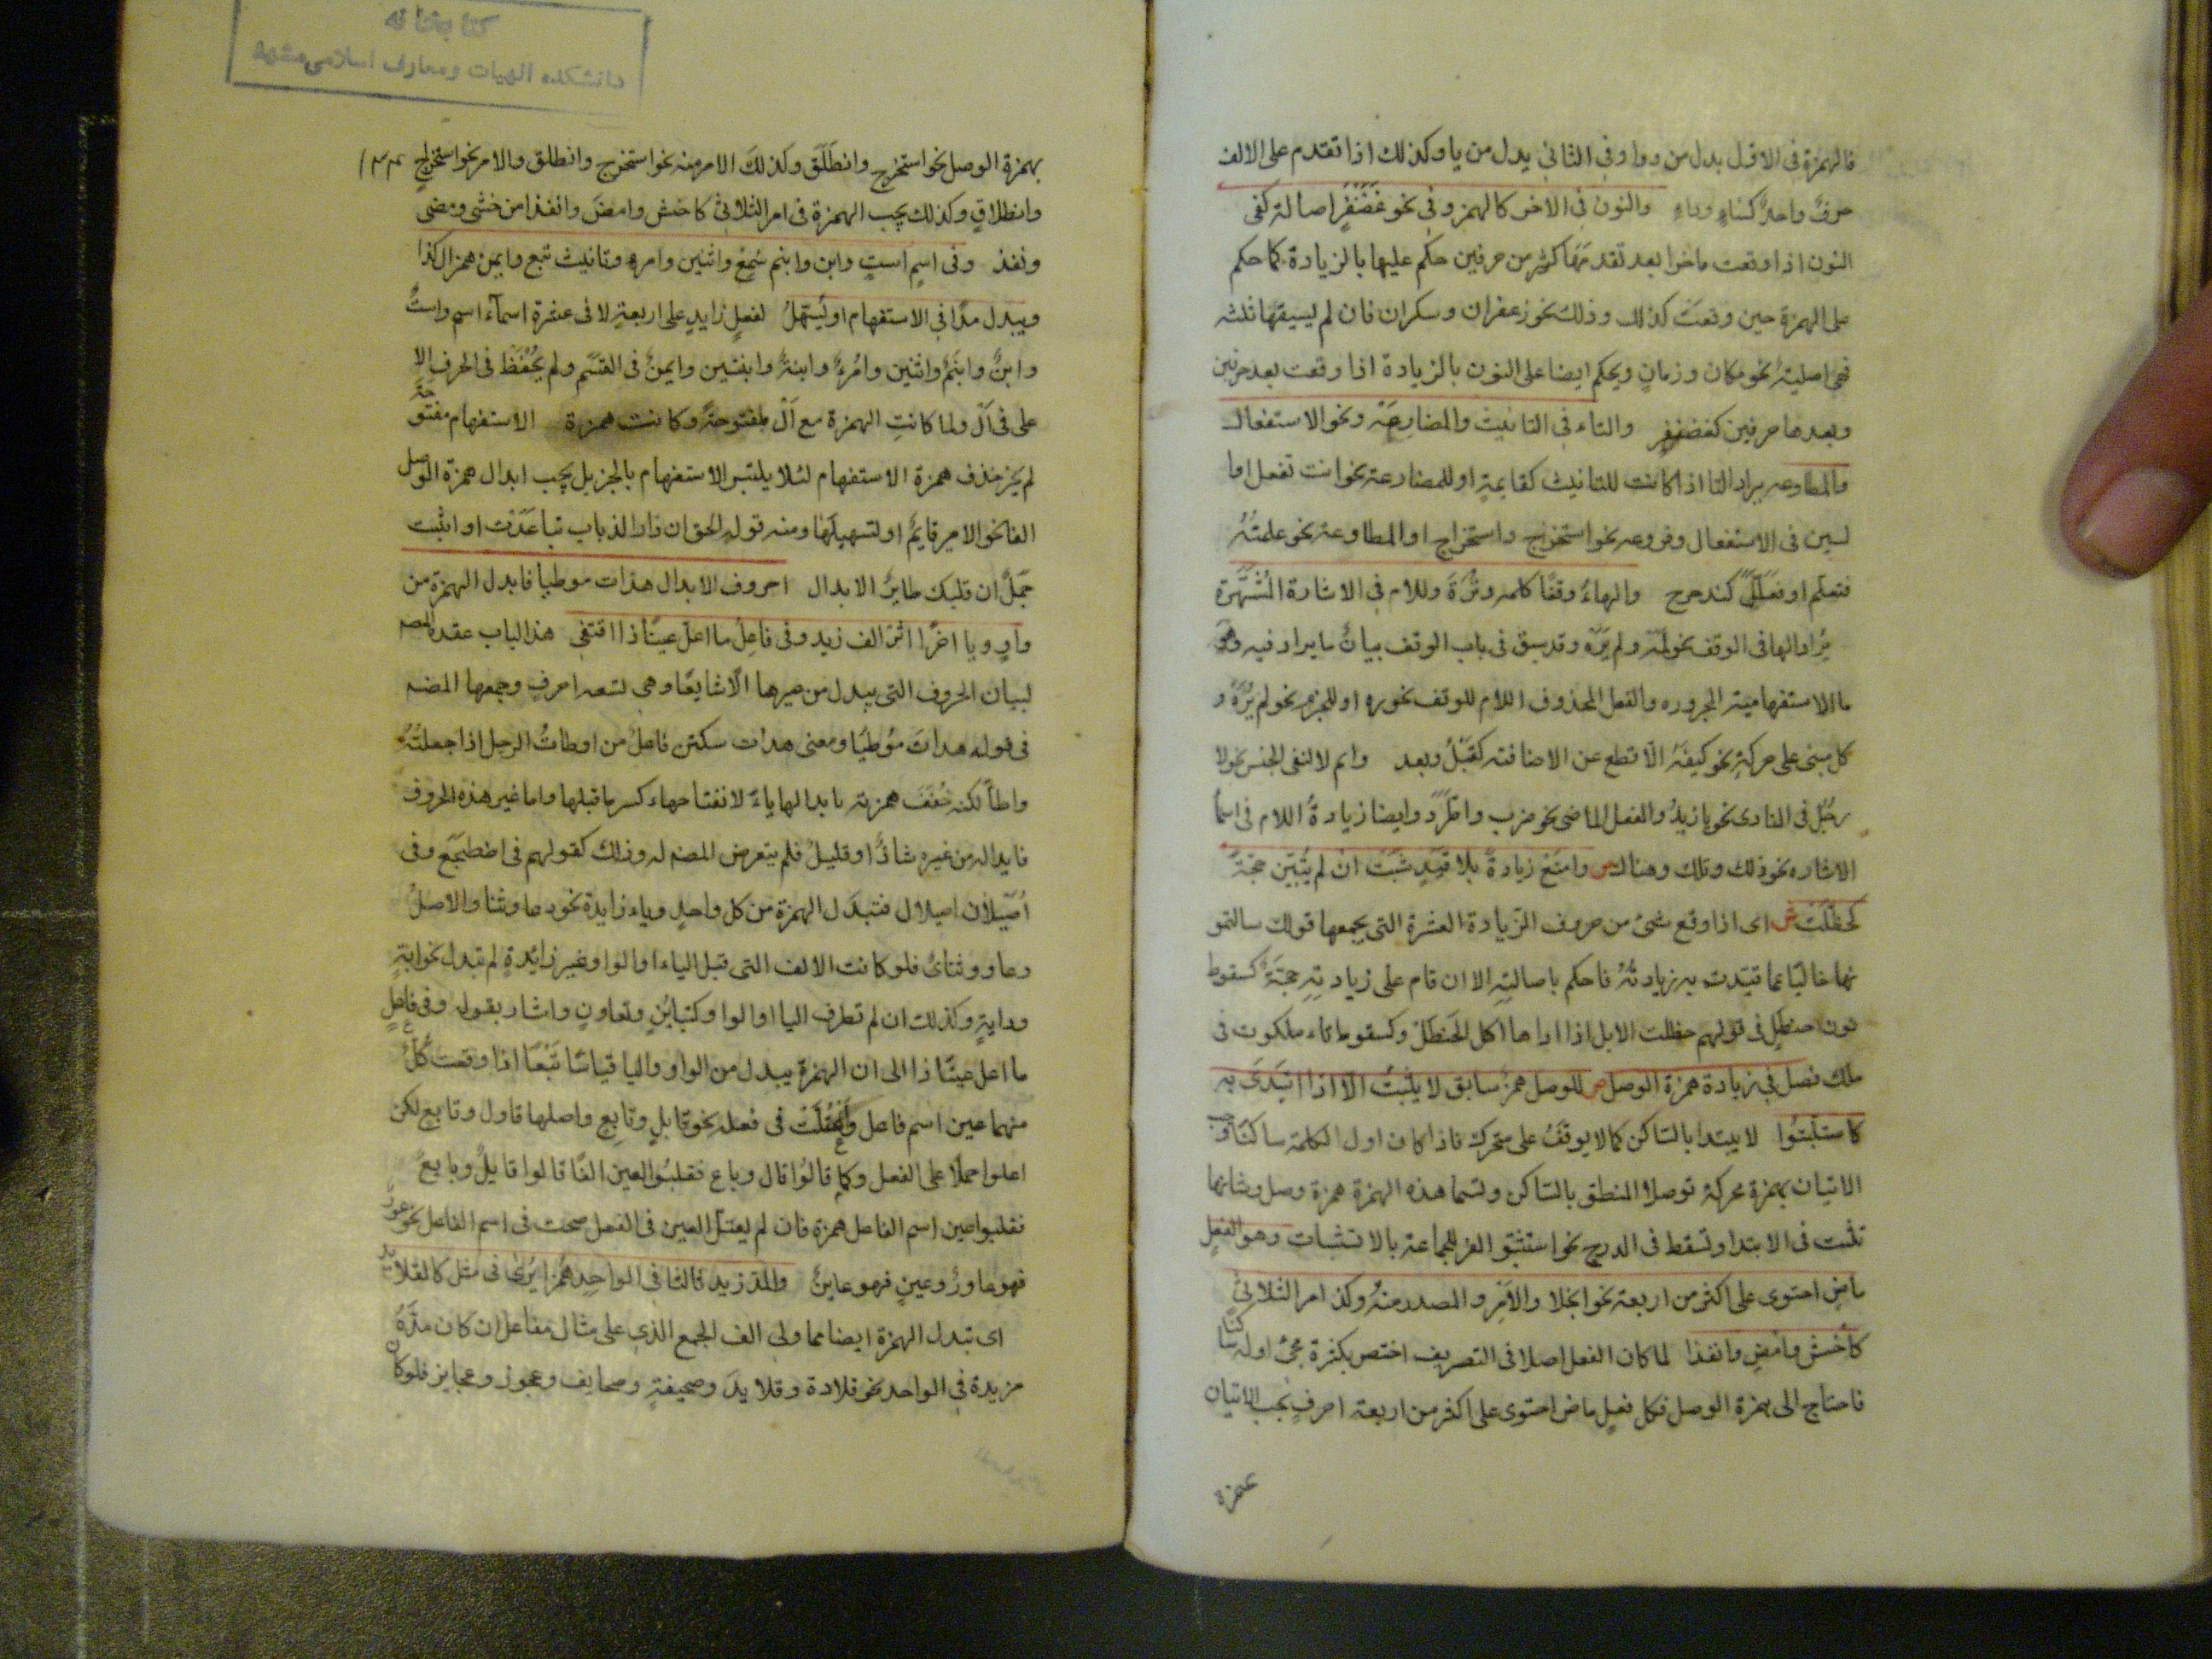 فالهمزة فى الاول بدل من واو وفى الثانى بدل من يا وكذلك اذا تقدم على الالف
حرف واحد كساء وداء والنون فى الاخر كالهمز وفى نحو غضنفر اصالة كفى
النون اذا وقعت ماخرا بعد تقدمها اكثر من حرفين حكم عليها بالزيادة كما حكم
على الهمزة حين وقعت كذلك وذلك نحو زعفران وسكران فان لم يسبقها ثلثه
فهى اصلية نحو مكان وزمان ويحكم ايضا على النون بالزيادة اذا وقعت بعد حرفين
وبعدها حرفين كغضنفر والتاء فى التانيث والمضارعة ونحو الاستفعال
والمطاوعه يراد التا اذا كانت للتانيث كقايمة او للمضارعة نحو انت تفعل او ا
لسين فى الاستفعال وفروعه نحو استخرج واستخراج او المطاوعة نحو علمته
فتعلم او فعلل كتدحرج والهاء وقفا كلمه ولم تره واللام فى الاشارة المشتهرة
يزاد الها فى الوقف نحو لمه ولم يره وقد سبق فى باب الوقف بيان ما يراد فيه وهو
ما الاستفهامية المجروره والفعل المحذوف اللام للوقف نحو ره او للجزم نحو لم يره و
كل مبنى على حركة نحو كيفه الا قطع عن الاضافته كقبل وبعد واسم لا لنفى الجنس نحو لا
رجل فى المنادى نحو يا زيد والفعل الماضى نحو ضرب واطرد وايضا زيادة اللام فى اسما
الاشاره نحو ذلك وتلك وهنالك ص وامنع زيادة بلا قيد ثبت ان لم يتبين حجة
كحظلت ش اى اذا وقع شىء من حروف الزيادة العشرة التى يجمعها قولك سالتمو
نيها خاليا عما قيدت به زيادته فاحكم باصالته الا ان قام على زيادته حجة كسقوط
نون حنظل فى قولهم حظلت الابل اذا اذاها اكل الحنظل وكسقوط تاء ملكوت فى
ملك فصل فى زيادة همزة الوصل ص للوصل همز سابق لا يثبت الا اذا ابتدى به
كاستثبتوا لا يبتدا بالساكن كما لا يوقف على متحرك فاذا كان اول الكلمة ساكنا وجب
الاتيان بهمزة محركة توصلا للنطق بالساكن وتسما هذه الهمزة همزة وصل وشانها
تثبت فى الابتدا وتسقط فى الدرج نحو استثبتوا امر للجماعة بالاستثبات وهو لفعل
ماض احتوى على اكثر من اربعة نحو انجلا والامر والمصدر منه وكذا امر الثلاثى
كاخش وامض وانفذا لما كان الفعل اصلا فى التصريف اختص بكثرة مجئ اوله ساكنا
فاحتاج الى همزة الوصل فكل فعل ماض احتوى على اكثر من اربعة احرف يجب الاتيان
بهمزة الوصل نحو استخرج وانطلق وكذلك الامر منه نحو استخرج وانطلق والامر نحو استخراج
وانطلاق وكذلك يجب الهمزة فى امر الثلاثى كاخش وامض وانفذ امن خشى ومضى
ونفذ وفى اسم است وابن وابنم سمع واثنين وامره وتانيث تبع وايمن همز ال كذا
ويبدل مدا فى الاستفهام او يسهل لفعل زايد على اربعة لا فى عشرة اسماء اسم واست
وابن وابنم واثنين وامرء وابنة واثنتين وايمن فى القسم ولم يحفظ فى الحرف الا
على فى ال ولما كانت الهمزة مع ال مفتوحة وكانت همزة الاستفهام مفتوحة
لم يجز حذف همزة الاستفهام لئلا يلتبس الاستفهام بالخبر بل يجب ابدال همزة الوصل
الفا نحو الامير قايم او تسهيلها ومنه قوله الحق ان دار الذباب تباعدت او انبت
حبل ان قلبك طاير الابدال احروف الابدال هدات موطيا فابدل الهمزة من
واو ويا اخرا اثر الف زيد وفى فاعل ما اعل عينا ذا اقتفى هذا الباب عقده المصـ
لبيان الحروف التى يبدل من غيرها الا شايعا وهى تسعه احرف وجمعها المصـ
فى قوله هدات موطيا ومعنى هدات سكنت فاعل من اوطات الرحل اذا جعلته
واطا لكنه خفف همزته بابدالها ياء لانفتاحها وكسر ما قبلها واما غير هذه الحروف
فابداله من غيره شاذ او قليل فلم يتعرض المصـ له وذلك كقولهم فى اضطجع وفى
اصيلان اصيلال فتبدل الهمزة من كل واحد وياء زايدة نحو دعا وثنا والاصل
دعاو وثناى فلو كانت الالف التى قبل الياء او الواو غير زائدة لم تبدل نحو اية
وداية وكذلك ان لم تطرف اليا او الواو كتباين وتعاون واشار بقوله وفى فاعل
ما اعل عينا ذا الى ان الهمزة يبدل من الواو واليا قياسا تبعا اذا وقعت كل
منهما عين اسم فاعل واعلت فى فعله نحو قايل وبايع واصلها قاول وبايع لكن
اعلوا حملا على الفعل وكما قالوا قال وباع فقلبوا العين الفا قالوا قايل وبايع
فقلبوا عين اسم الفاعل همزة فان لم يعتل العين فى الفعل صحت فى اسم الفاعل نحو عور
فهو عاور وعين فهو عاين والمد زيد ثالثا فى الواحد همزا يرى فى مثل كالقلايد
اى تبدل الهمزة ايضا مما ولى الف الجمع الذى على مثال مفاعل ان كان مدة
مزيدة فى الواحد نحو قلادة وقلايد وصحيفة وصحايف وعجوز وعجايز فلو كان
كتابخانه
دانشكده الهيات ومعارف اسلامى مشهد